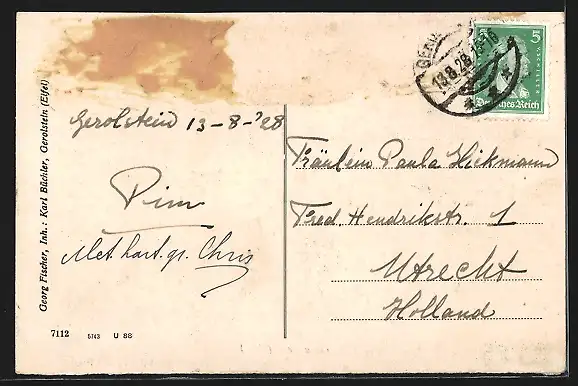 Gerolstein 13-8-'28
Pim
Met hart. gr. Chris
Fräulein Paula Hickmann
Fred. Hendrikstr. 1
Utrecht
Holland
Georg Fischer, Inh.: Karl Büchler, Gerolstein (Eifel)
7112 5743 U 88
5 5
Deutsches Reich
13.8.28